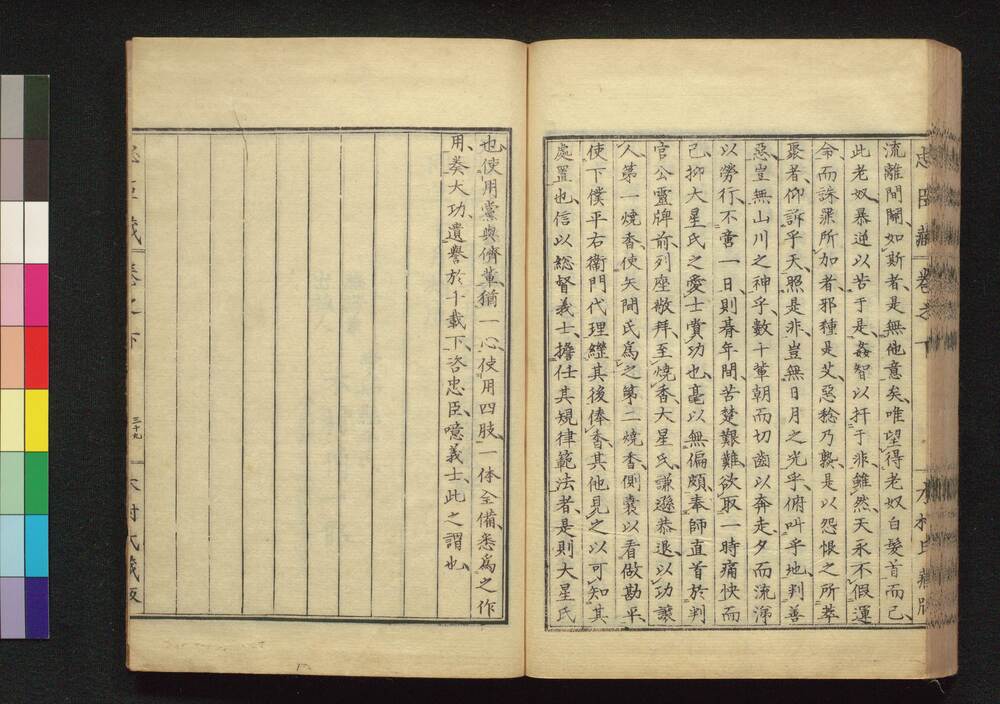 流離間關、如斯者、是無他意矣、唯望得老奴白髮首而已、
此老奴暴逆以苦于是、姦智以扞于非、雖然、天永不假運
命、而誅罪所加者、邪種是艾、惡稔乃斃、是以怨恨之所萃
聚者、仰訴乎天、照是非、豈無日月之光乎、俯叫乎地、判善
惡、豈無山川之神乎、數十輩朝而切齒以奔走、夕而流涕
以勞行、不啻一日、則暮年間、苦楚艱難、欲取一時痛快而
已、抑大星氏之愛士賞功也、毫以無偏頗、奉師直首於判
官公靈牌前、列座敬拜、至燒香、大星氏謙遜恭退、以功讓
人、第一燒香使矢間氏爲之、第二燒香、側囊以看做勘平、
使下僕平右衞門代理、纔其後俸香、其他見之以可知、其
處置也、信以総督義士、擔任其規律範法者、是則大星氏
也、使用黨與儕輩、猶一心使用四肢、一体全備、悉爲之作
用、奏大功、遺譽於千載下、咨忠臣、噫義士、此之謂也、
忠臣藏
卷之下
三十九
木村氏藏版